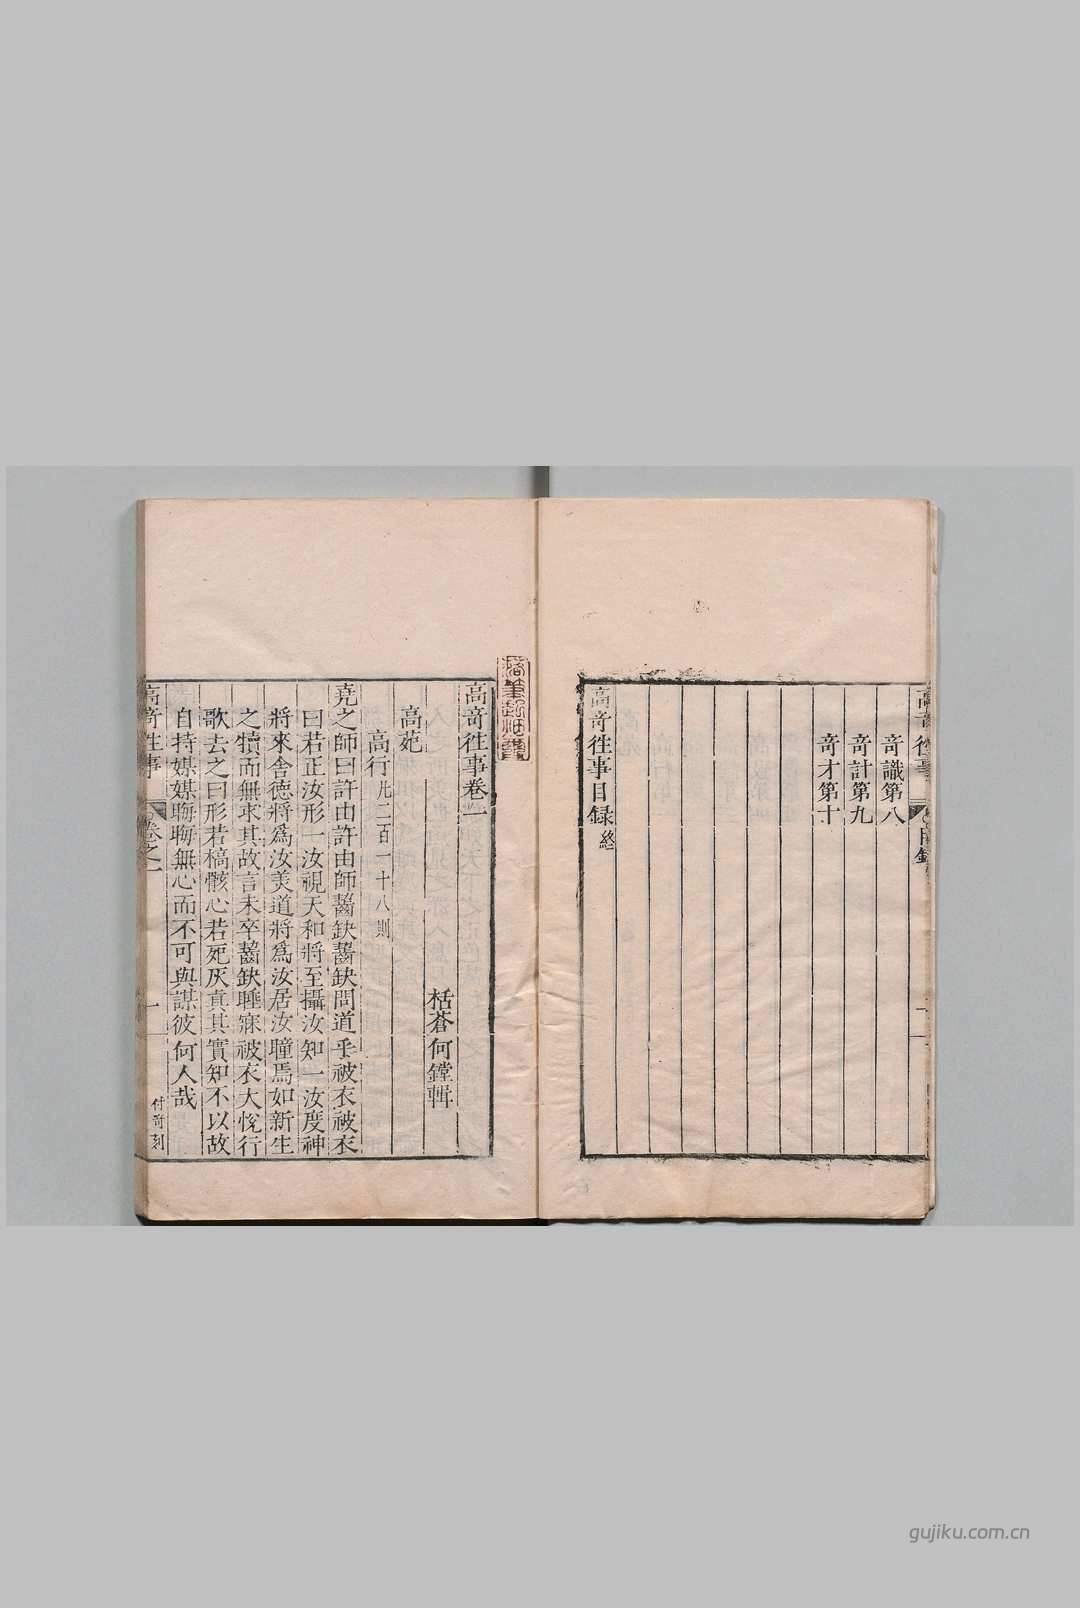 高竒徃事
目録
竒識第八
竒計第九
竒才第十
高竒徃事目録終
高竒徃事卷一
括蒼何鏜輯
高苑
高行凢二百一十八則
堯之師曰許由許由師齧缺齧缺問道乎被衣被衣
曰若正汝形一汝視天和將至攝汝知一汝度神
將來舍德將爲汝美道將爲汝居汝瞳焉如新生
之犢而無求其故言未卒齧缺睡寐被衣大恱行
歌去之曰形若槁骸心若死灰真其實知不以故
自持媒媒晦晦無心而不可與謀彼何人哉
高竒徃事
卷之一
一
付竒刻
gujiku.com.cn